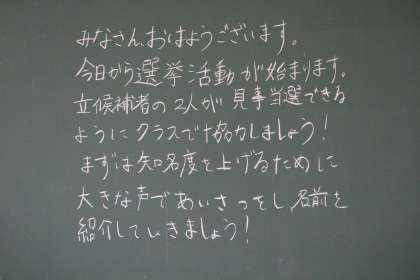 みなさん、おはようございます。
今日から選挙活動が始まります。
立候補者の2人が見事当選できる
ようにクラスで協力しましょう!
まずは知名度を上げるために
大きな声であいさつをし、名前を
紹介していきましょう!